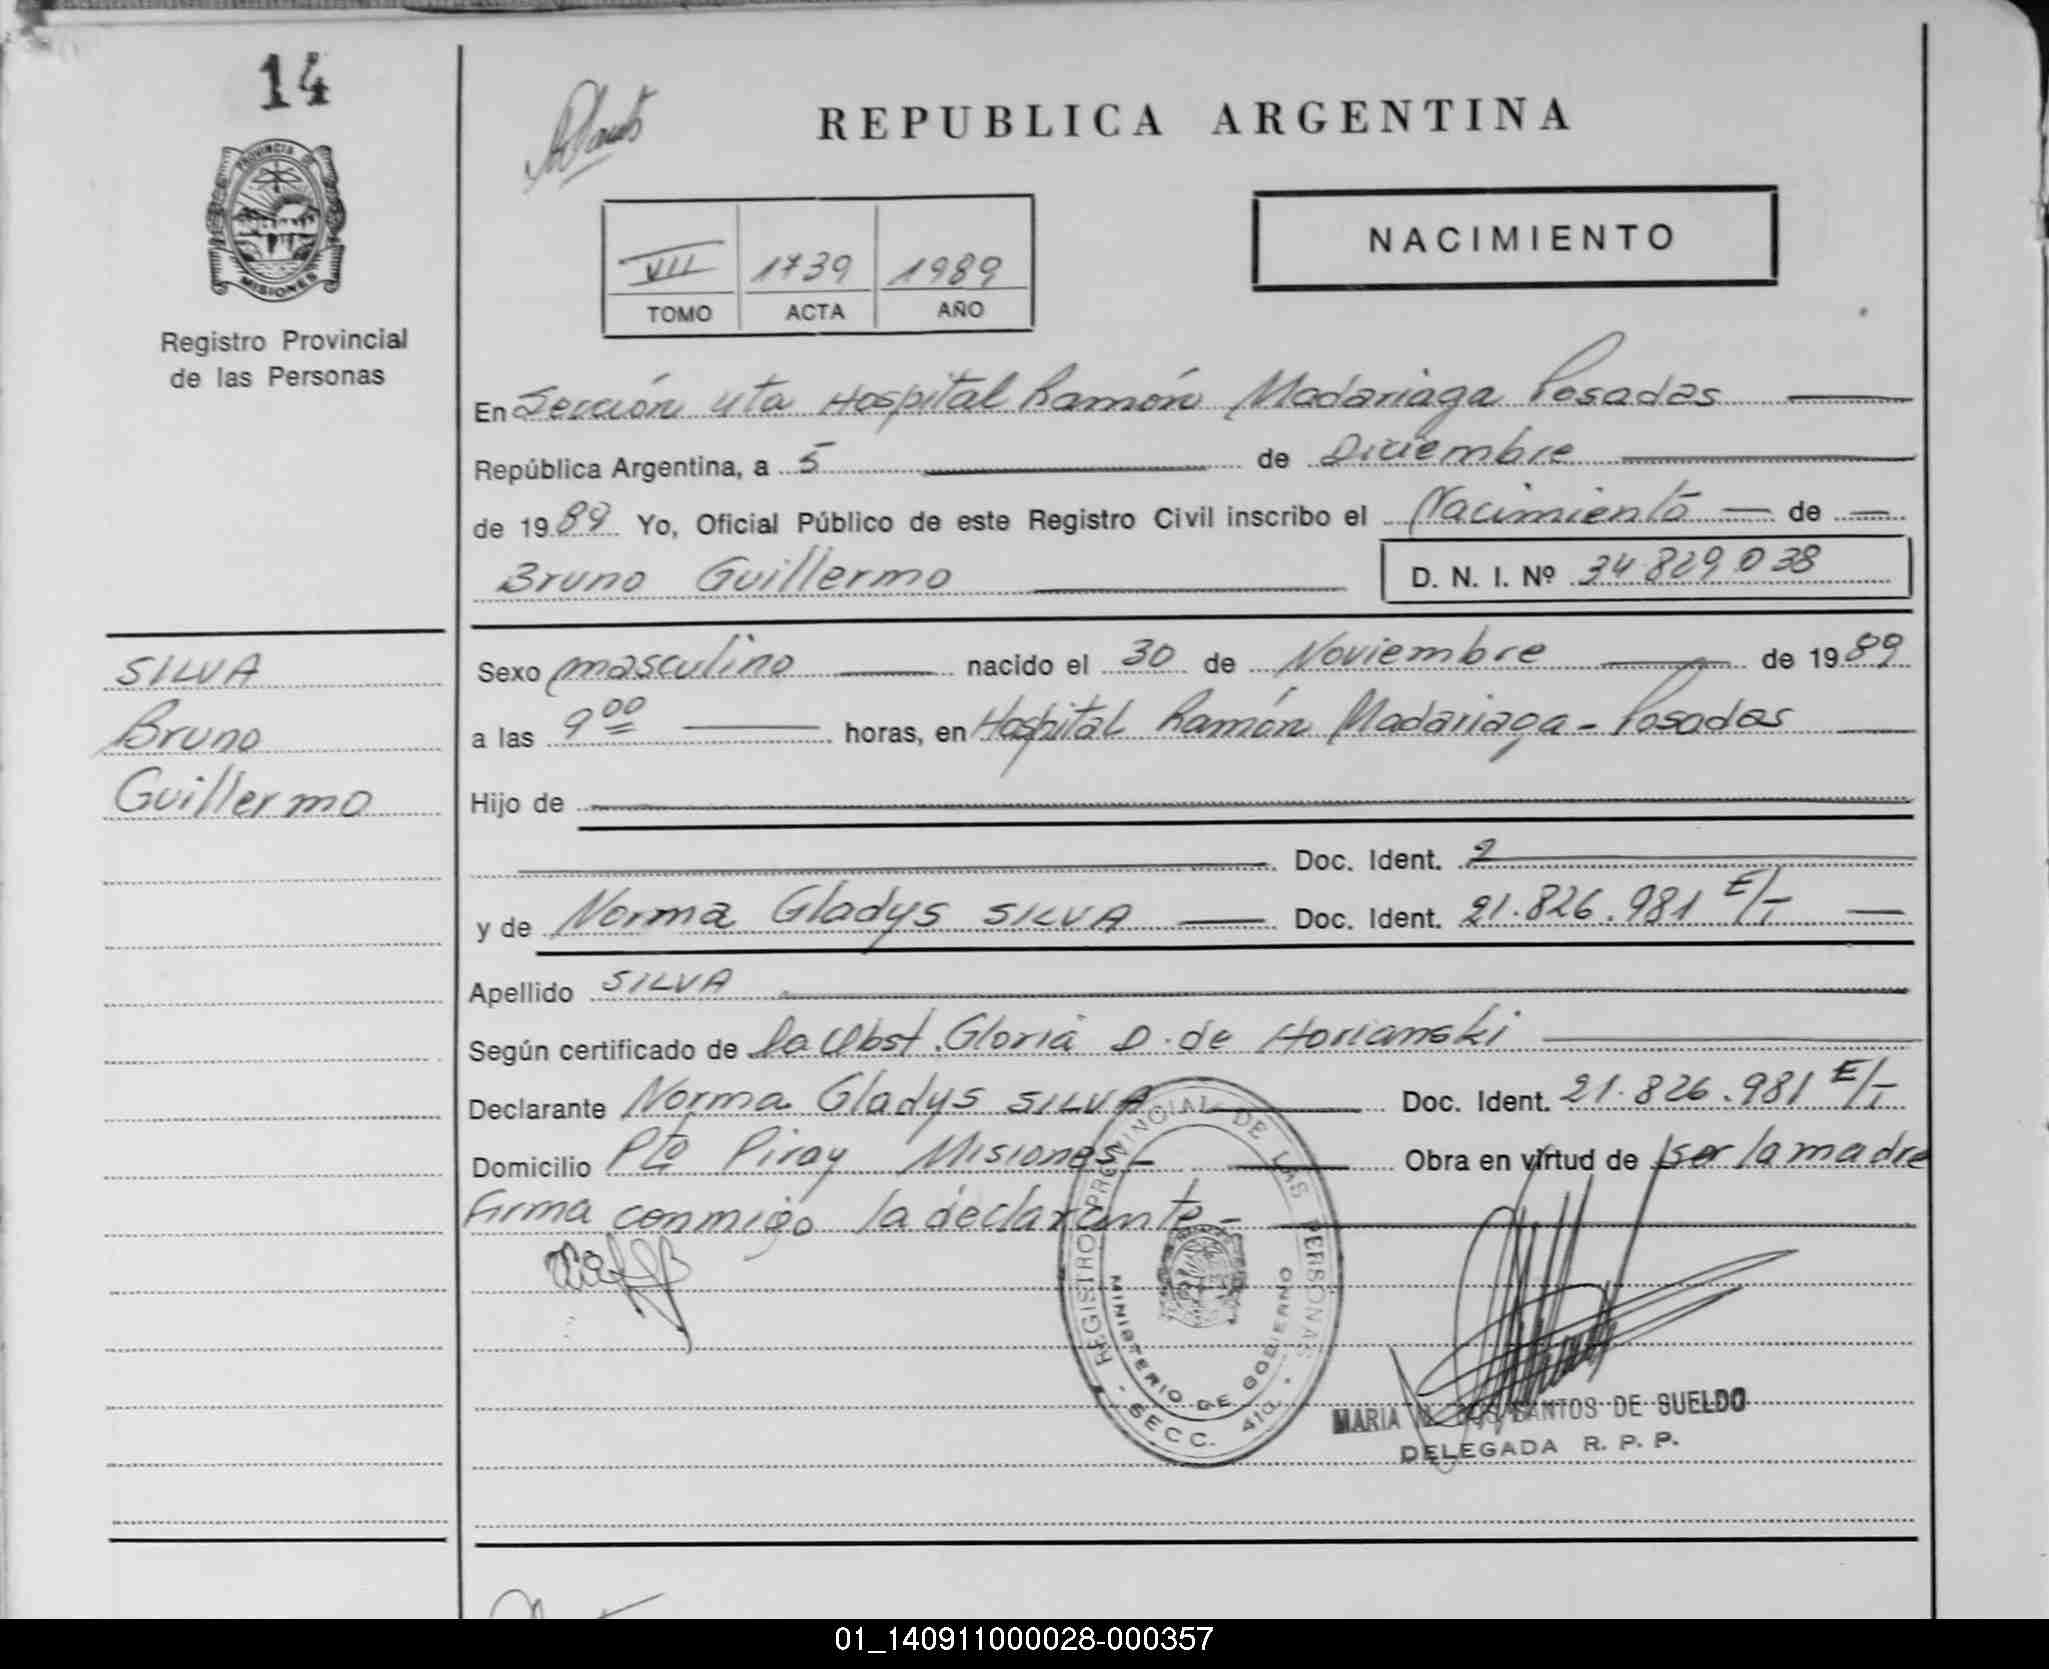 14
PROVINCIA DE
MISIONES
Registro Provincial
de las Personas
REPUBLICA ARGENTINA
NACIMIENTO
VII 1739 1989
TOMO ACTA AÑO
En Sección 4ta Hospital Ramón Madariaga Posadas
República Argentina, a 5 de Diciembre
de 1989 Yo, Oficial Público de este Registro Civil inscribo el Nacimiento de
Bruno Guillermo
D. N. I. Nº 34.829.038
SILVA
Bruno
Guillermo
Sexo masculino nacido el 30 de Noviembre de 1989
a las 9 00 horas, en Hospital Ramón Madariaga - Posadas
Hijo de
Doc. Ident.
y de Norma Gladys SILVA Doc. Ident. 21.826.981 E/T
Apellido SILVA
Según certificado de la Obst. Gloria D. de Horianski
Declarante Norma Gladys SILVA Doc. Ident. 21.826.981 E/T
Domicilio Pto Piray Misiones - Obra en virtud de ser la madre
Firma conmigo la declarante -
REGISTRO PROVINCIAL DE LAS PERSONAS
MINISTERIO DE GOBIERNO
- SECC. 4ta. -
MARIA DOS SANTOS DE SUELDO
DELEGADA R. P. P.
01_140911000028-000357